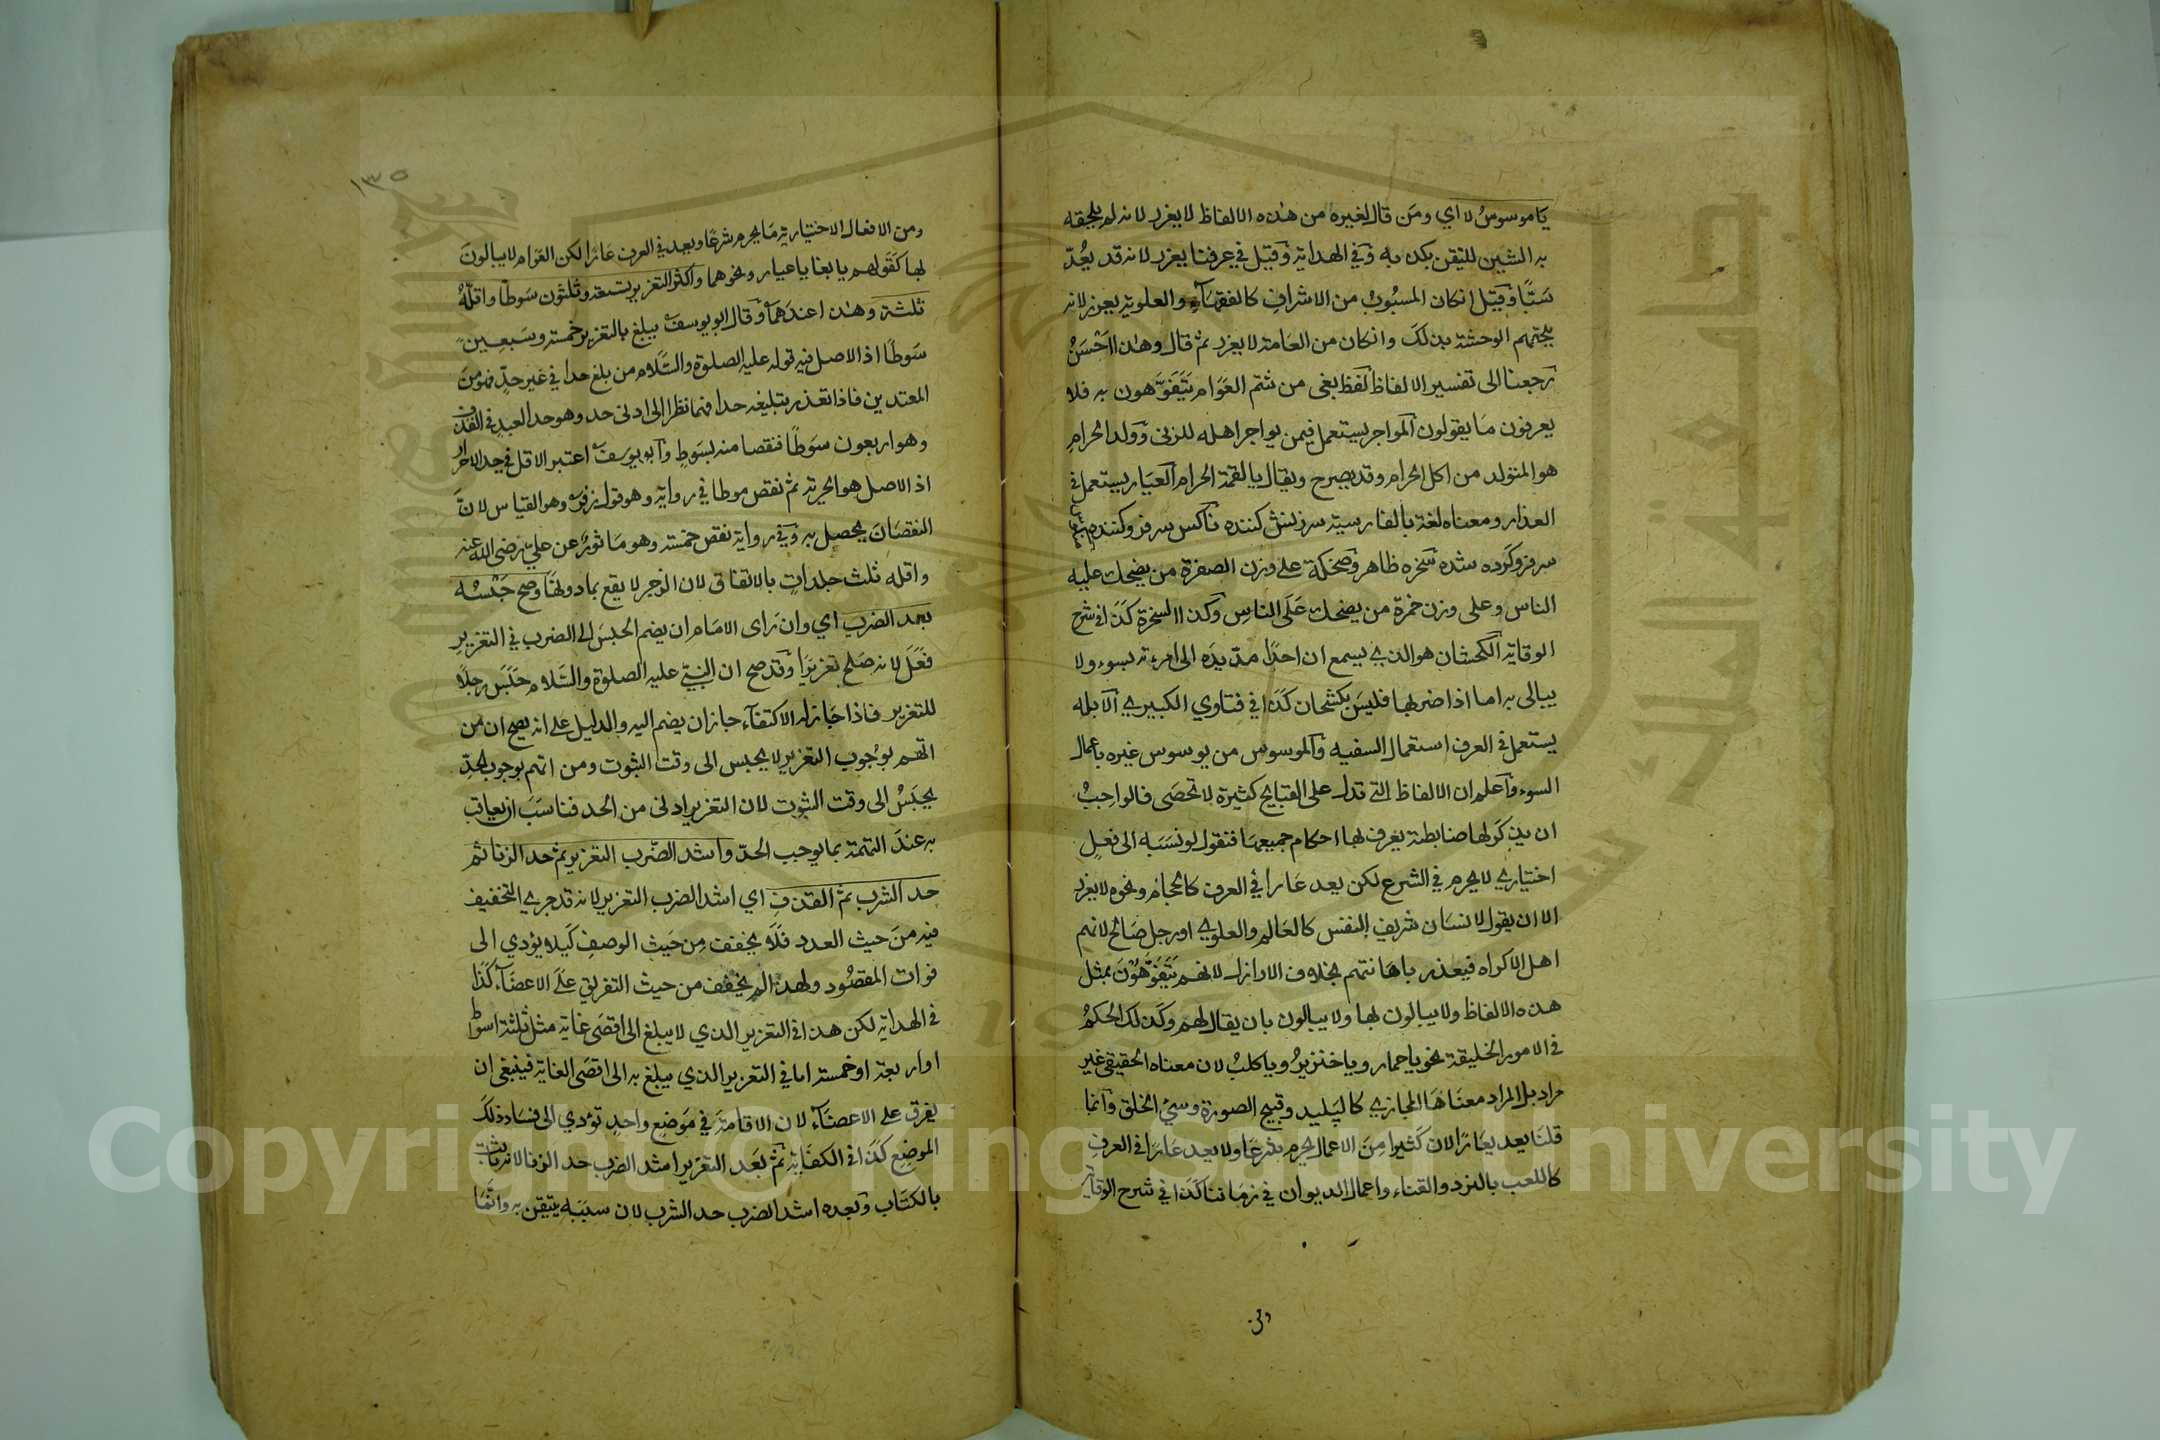 يا موسوس لا اي ومن قال لغيره من هذه الالفاظ لا يعزر لانه لم يلحقه
به الشين للتيقن بكذبه وفي الهداية وقيل في عرفنا يعزر لانه قد يعد
سبا وقيل ان كان المسبوب من الاشراف كالفقهاء والعلوية يعزر لانه
يلحقهم الوحشة بذلك وان كان من العامة لا يعزر ثم قال وهذا احسن
رجعنا الى تفسير الالفاظ لفظ بغى من شتم العوام يتفوهون به فلا
يعرفون ما يقولون المواجر يستعمل فيمن يواجر اهله للزنى وولد الحرام
هو المتولد من اكل الحرام وقد يصرح ويقال يا لقمة الحرام العيار يستعمل في
العذار ومعناه لغة بالفارسية سرزنش كننده ناكس سرفروكننده منكوس
سرفروكرده شده سخره ظاهر وضحكة على وزن الصفرة من يضحك عليه
الناس وعلى وزن حمزة من يضحك على الناس وكذا السخرة كذا في شرح
الوقاية الكحشان هو الذي يسمع ان احدا مد يده الى امرءته بسوء ولا
يبالى به اما اذا ضربها فليس بكشحان كذا في فتاوي الكبيري الابله
يستعمل في العرف استعمال السفيه والموسوس من يوسوس غيره باعمال
السوء واعلم ان الالفاظ التي تدل على القبايح كثيرة لا تحصى فالواجب
ان يذكر لها ضابطة يعرف لها احكام جميعها فنقول لو نسبه الى فعل
اختياري لا يحرم في الشرع لكن يعد عارا في العرف كالحجام ونحوه لا يعزر
الا ان يقول لانسان شريف النفس كالعالم والعلوي او رجل صالح لانهم
اهل الاكراه فيعذر باهانتهم بخلاف الاراذل لانهم يتفوهون بمثل
هذه الالفاظ ولا يبالون لها ولا يبالون بان يقال لهم وكذلك الحكم
في الامور الخليقة نحو يا حمار ويا خنزير ويا كلب لان معناه الحقيقي غير
مراد بل المراد معناها المجازي كالبليد وقبيح الصورة وسئ الخلق وانما
قلنا يعد عارا لان كثيرا من الاعمال يحرم شرعا ولا يعد عارا في العرف
كاللعب بالنرد والقناء واعمال الديوان في زماننا كذا في شرح الوقاية
ومن
١٣٥
ومن الافعال الاختيارية ما يحرم شرعا ويعد في العرف عارا لكن العوام لا يبالون
لها كقولهم يا بغا يا عيار ونحوهما واكثر التعزير تسعة وثلثون سوطا واقله
ثلثة وهذا عندهما وقال ابو يوسف يبلغ بالتعزير خمسة وسبعين
سوطا اذ الاصل فيه قوله عليه الصلوة والسلام من بلغ حدا في غير حد فهو من
المعتدين فاذا تعذر بتبليغه حدا فهما نظرا الى ادنى حد وهو حد العبد في القذف
وهو اربعون سوطا فنقصا منه بسوط وابو يوسف اعتبر الاقل في حد الاحرار
اذ الاصل هو الحرية ثم نقص سوطا في رواية وهو قول زفر وهو القياس لان
النقصان يحصل به وفي رواية نقص خمسة وهو ماثور عن علي رضي الله عنه
واقله ثلث جلدات بالاتفاق لان الزجر لا يقع بما دونها وصح حبسه
بعد الضرب اي وان راى الامام ان يضم الحبس الى الضرب في التعزير
فعل لانه صلح تعزيرا وقد صح ان النبي عليه الصلوة والسلام حبس رجلا
للتعزير فاذا جاز له الاكتفاء جاز ان يضم اليه والدليل على انه يصح ان من
اتهم بوجوب التعزير لا يحبس الى وقت الثبوت ومن اتهم بوجوب الحد
يحبس الى وقت الثبوت لان التعزير ادنى من الحد فناسب ان يعاقب
به عند التهمة بما يوجب الحد واشد الضرب التعزير ثم حد الزنا ثم
حد الشرب ثم القذف اي اشد الضرب التعزير لانه قد جري التخفيف
فيه من حيث العدد فلا يخفف من حيث الوصف كيلا يؤدي الى
فوات المقصود ولهذا لم يخفف من حيث التفريق على الاعضاء كذا
في الهداية لكن هذا في التعزير الذي لا يبلغ الى اقصى غاية مثل ثلثة اسواط
او اربعة او خمسة اما في التعزير الذي يبلغ به الى اقصى الغاية فينبغي ان
يفرق على الاعضاء لان الاقامة في موضع واحد تؤدي الى فساد ذلك
الموضع كذا في الكفاية ثم بعد التعزير اشد الضرب حد الزنا لانه ثابت
بالكتاب وبعده اشد الضرب حد الشرب لان سببه يتيقن به وانما
Copyright © King Saud University